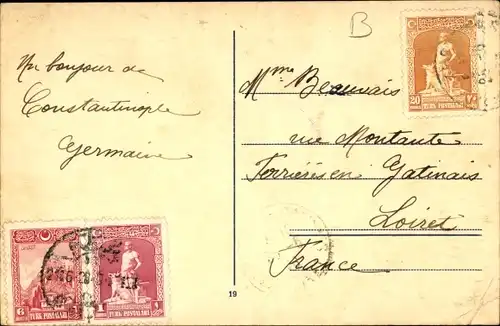 B
Un bonjour de
Constantinople
Germaine
Mme Beauvais
rue Montante
Ferrières en Gatinais
Loiret
France
20
TURK POSTALARI
6
TURK POSTALARI
1
TURK POSTALARI
19